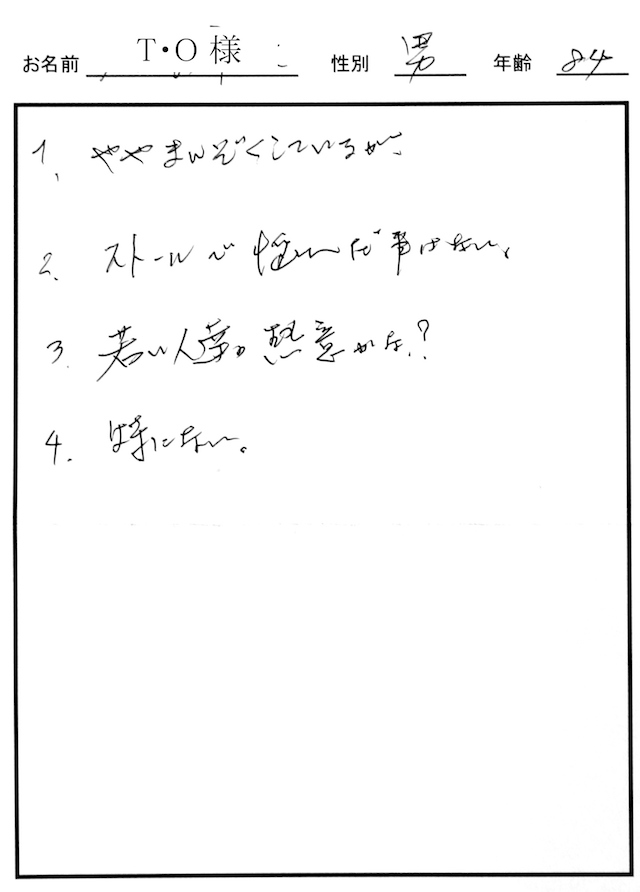 お名前 T・O 様 性別 男 年齢 84
1. ややまんぞくしているが、
2. ストールで悩んだ事はない。
3. 若い人達の熱意かな?
4. 特にない。